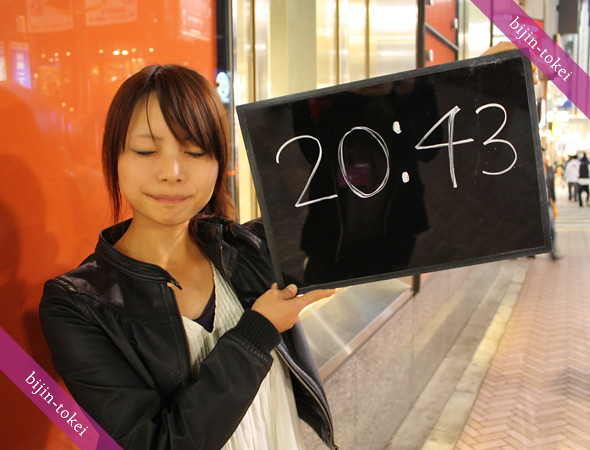 bijin-tokei
20:43
bijin-tokei